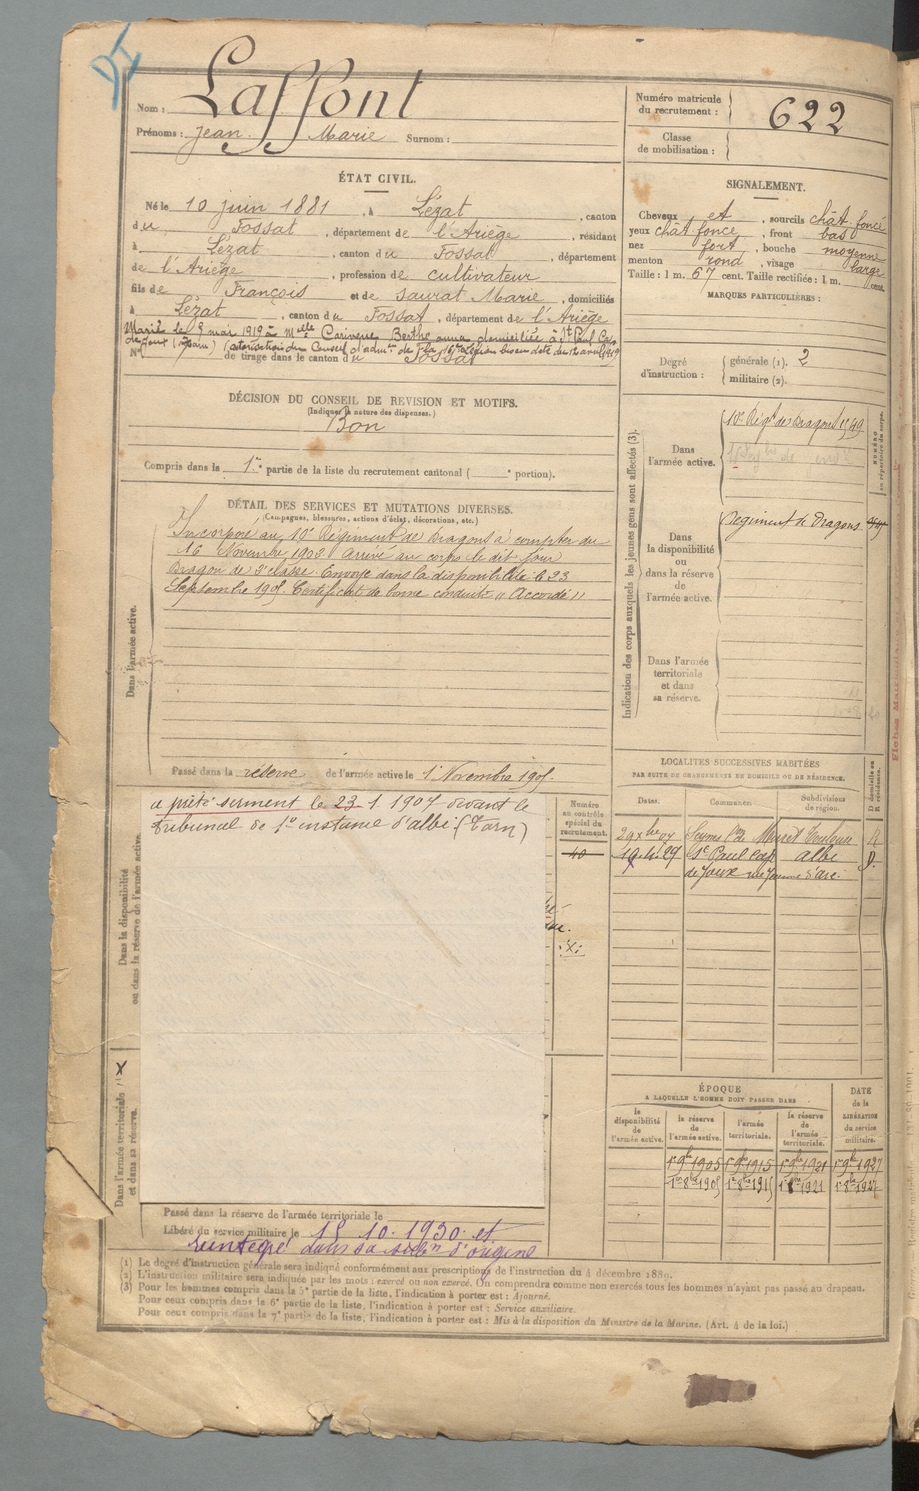 Nom : Laffont
Prénoms : Jean Marie Surnom :
Numéro matricule du recrutement : 622
Classe de mobilisation :
ÉTAT CIVIL.
Né le 10 juin 1881, à Lézat, canton
du Fossat, département de l'Ariège, résidant
à Lézat, canton du Fossat, département
de l'Ariège, profession de cultivateur
fils de François et de Saurat Marie, domiciliés
à Lézat, canton du Fossat, département de l'Ariège
Marié le 8 mai 1919 à Melle Berthe domiciliée à St Paul Cap
de Joux (Tarn) (autorisation du Conseil d'admon de la
N° de tirage dans le canton du Fossat
SIGNALEMENT.
Cheveux et, sourcils chât. foncé
yeux chât foncé, front bas
nez fort, bouche moyenne
menton rond, visage large
Taille : 1 m. 67 cent. Taille rectifiée : 1 m. cent.
MARQUES PARTICULIÈRES :
Degré d'instruction : générale (1). 2
militaire (2).
DÉCISION DU CONSEIL DE REVISION ET MOTIFS.
(Indiquer la nature des dispenses.)
Bon
Compris dans la 1re partie de la liste du recrutement cantonal ( e portion).
DÉTAIL DES SERVICES ET MUTATIONS DIVERSES.
(Campagnes, blessures, actions d'éclat, décorations, etc.)
Dans l'armée active.
Incorporé au 10e Régiment de Dragons à compter du
16 Novembre 1902 Arrivé au corps le dit jour
Dragon de 2e classe. Envoyé dans la disponibilité le 23
Septembre 1905. Certificat de bonne conduite " Accordé "
Passé dans la réserve de l'armée active le 1er Novembre 1905.
Indication des corps auxquels les jeunes gens sont affectés (3).
NUMÉRO au répertoire du corps.
Dans l'armée active.
10e Régt de Dragons
Dans la disponibilité ou dans la réserve de l'armée active.
Régiment de Dragons
Dans l'armée territoriale et dans sa réserve.
Dans la disponibilité ou dans la réserve de l'armée active.
a prêté serment le 23.1.1907 devant le
tribunal de 1re instance d'albi (Tarn)
Numéro au contrôle spécial du recrutement.
40
LOCALITÉS SUCCESSIVES HABITÉES
PAR SUITE DE CHANGEMENTS DE DOMICILE OU DE RÉSIDENCE.
Dates. Communes. Subdivisions de région. D domicile ou R résidence.
29 Xbre 07 Muret Toulouse R
St Paul Cap albi D.
de Joux rue Jeanne d'arc.
Dans l'armée territoriale et dans sa réserve.
X
ÉPOQUE
A LAQUELLE L'HOMME DOIT PASSER DANS
la disponibilité de l'armée active.
la réserve de l'armée active.
l'armée territoriale.
la réserve de l'armée territoriale.
DATE de la LIBÉRATION du service militaire.
1er 9bre 1905 1er 9bre 1915 1er 9bre 1921 1er 9bre 1927
1er 8bre 1905 1er 8bre 1915 1er 8bre 1921 1er 8bre 1927
Passé dans la réserve de l'armée territoriale le
Libéré du service militaire le 15.10.1930 et
réintégré dans sa subdon d'origine
(1) Le degré d'instruction générale sera indiqué conformément aux prescriptions de l'instruction du 4 décembre 1889.
(2) L'instruction militaire sera indiquée par les mots : exercé ou non exercé. On comprendra comme non exercés tous les hommes n'ayant pas passé au drapeau.
(3) Pour les hommes compris dans la 5e partie de la liste, l'indication à porter est : Ajourné.
Pour ceux compris dans la 6e partie de la liste, l'indication à porter est : Service auxiliaire.
Pour ceux compris dans la 7e partie de la liste, l'indication à porter est : Mis à la disposition du Ministre de la Marine. (Art. 4 de la loi.)